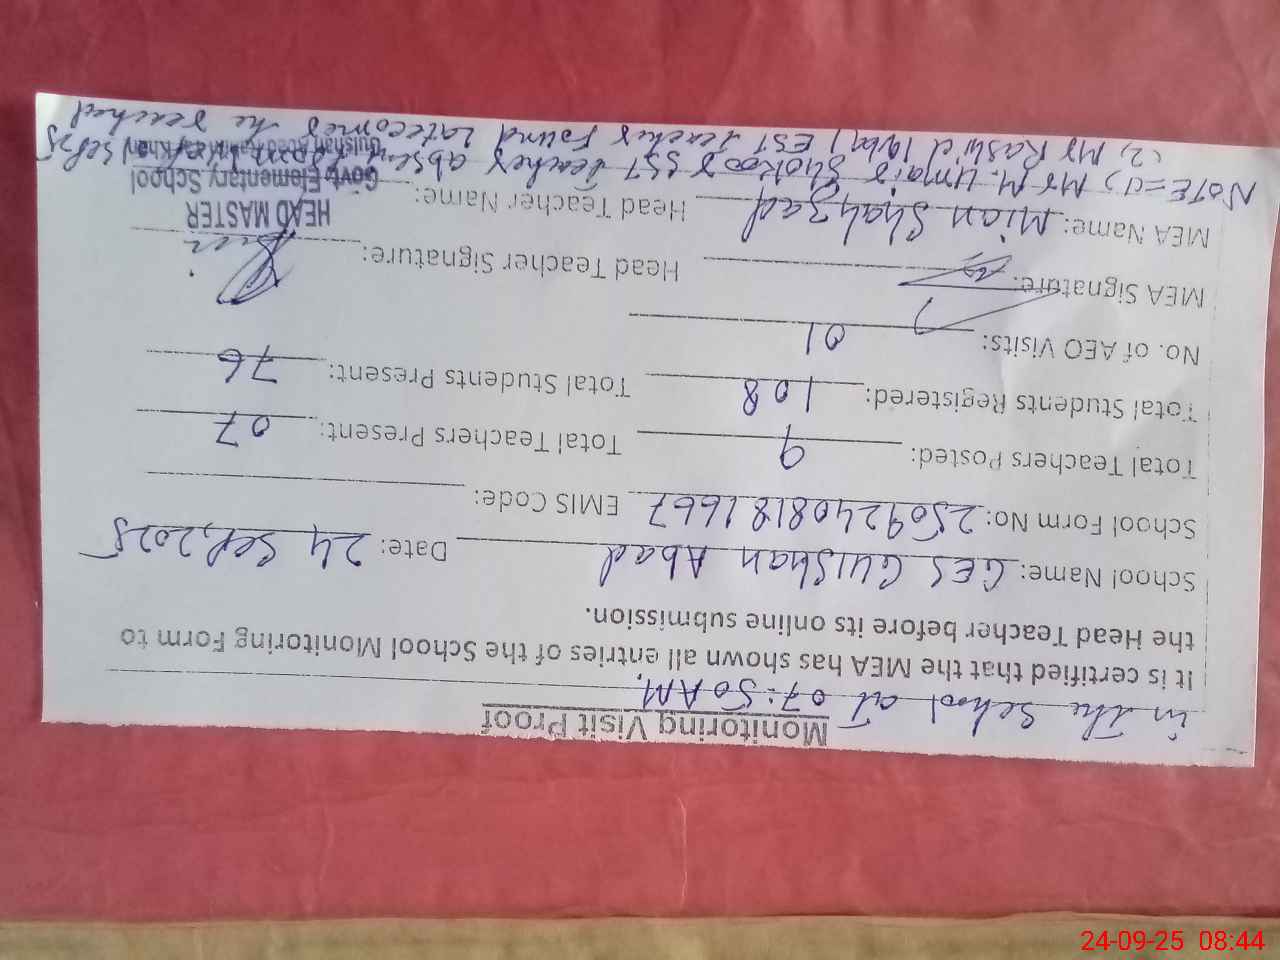 Monitoring Visit Proof
in the School at 07:50 AM.
It is certified that the MEA has shown all entries of the School Monitoring Form to
the Head Teacher before its online submission.
School Name: GES Gulshan Abad Date: 24 Sep, 2025
School Form No: 2509240818 1667 EMIS Code:
Total Teachers Posted: 9 Total Teachers Present: 07
Total Students Registered: 108 Total Students Present: 76
No. of AEO Visits: 01
MEA Signature: Head Teacher Signature:
MEA Name: Mian Shahzad Head Teacher Name:
HEAD MASTER
Govt. Elementary School
Gulshan Abad Rahim Yar Khan
NOTE = (1) Mr M. Umair Shokoor SST Teacher absent Sep 25
(2) Mr Rashid Iqbal EST Teacher Found Latecomer he reached
24-09-25 08:44